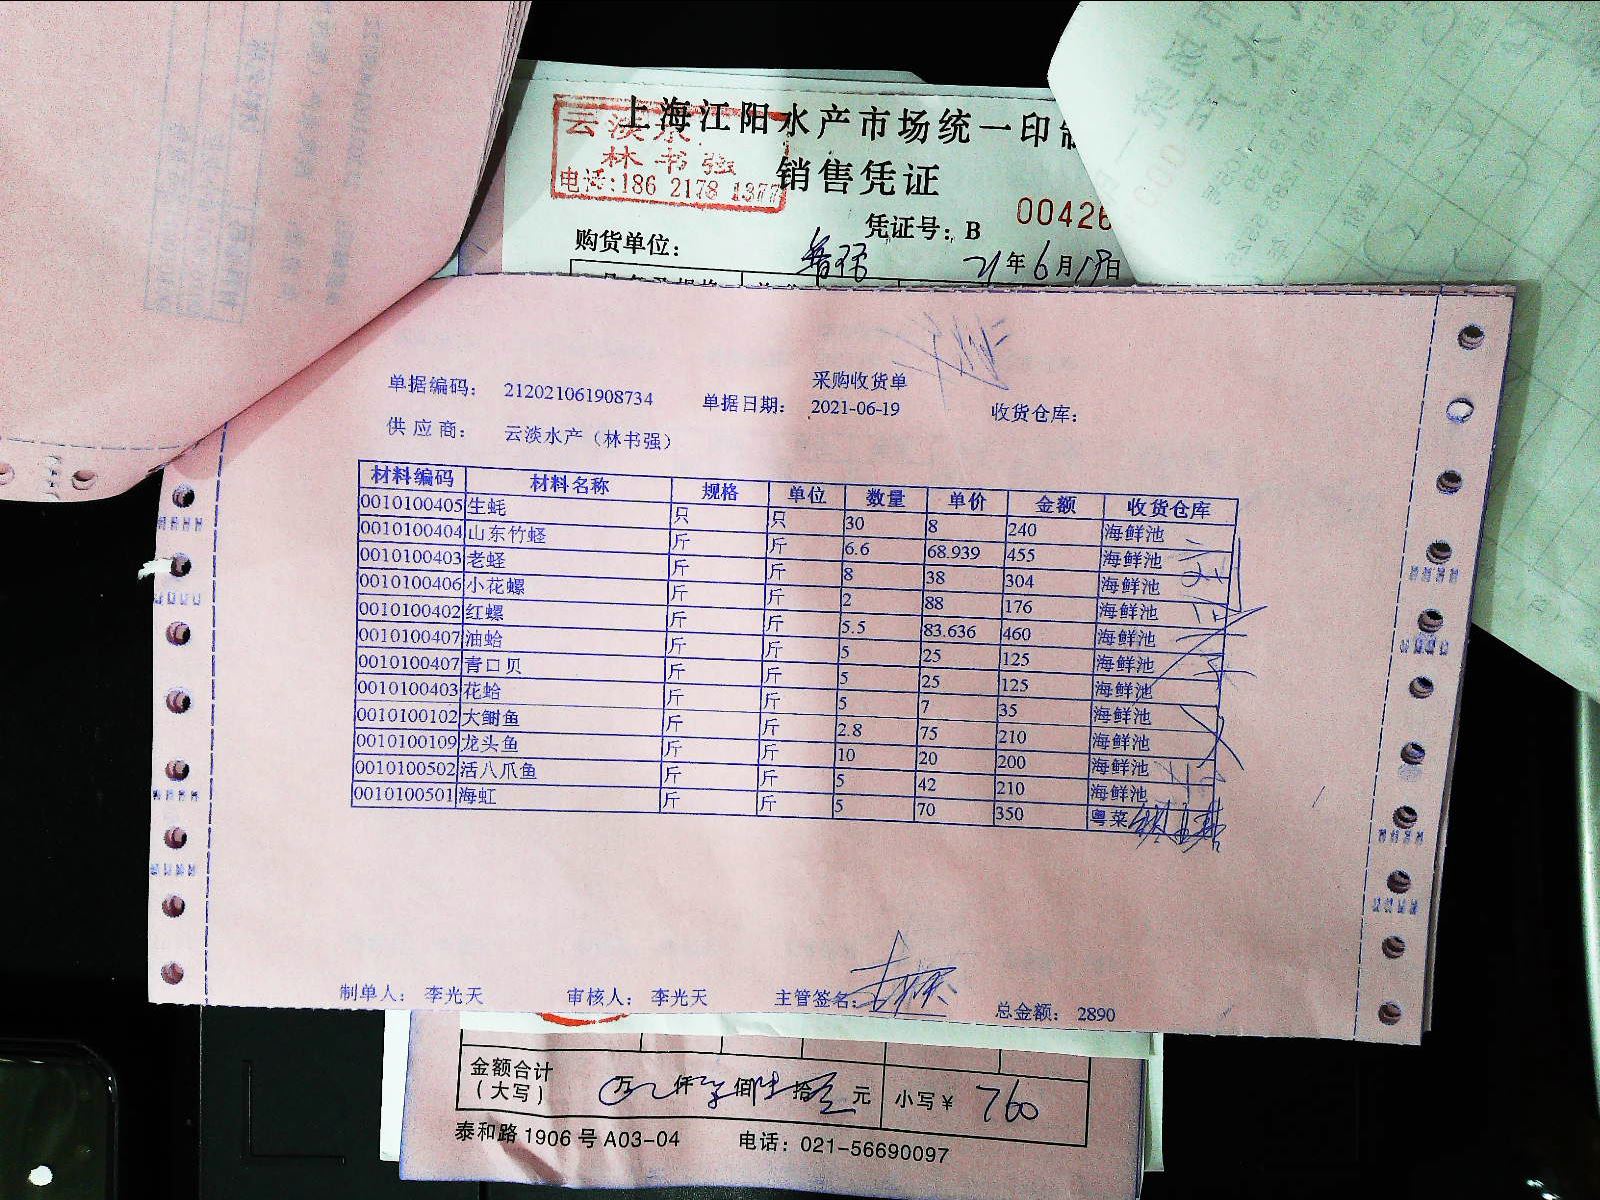 上海江阳水产市场统一印制
云淡水
林书强
电话:186 2178 1377
销售凭证
凭证号:B 00426
购货单位:
21年6月19日
采购收货单
单据编码: 212021061908734 单据日期: 2021-06-19 收货仓库:
供应商: 云淡水产(林书强)
材料编码 材料名称 规格 单位 数量 单价 金额 收货仓库
0010100405 生蚝 只 只 30 8 240 海鲜池
0010100404 山东竹蛏 斤 斤 6.6 68.939 455 海鲜池
0010100403 老蛏 斤 斤 8 38 304 海鲜池
0010100406 小花螺 斤 斤 2 88 176 海鲜池
0010100402 红螺 斤 斤 5.5 83.636 460 海鲜池
0010100407 油蛤 斤 斤 5 25 125 海鲜池
0010100407 青口贝 斤 斤 5 25 125 海鲜池
0010100403 花蛤 斤 斤 5 7 35 海鲜池
0010100102 大鲥鱼 斤 斤 2.8 75 210 海鲜池
0010100109 龙头鱼 斤 斤 10 20 200 海鲜池
0010100502 活八爪鱼 斤 斤 5 42 210 海鲜池
0010100501 海虹 斤 斤 5 70 350 粤菜
制单人: 李光天 审核人: 李光天 主管签名: 总金额: 2890
金额合计
(大写) 万 仟 佰 拾 元 小写¥ 760
泰和路1906号A03-04 电话:021-56690097